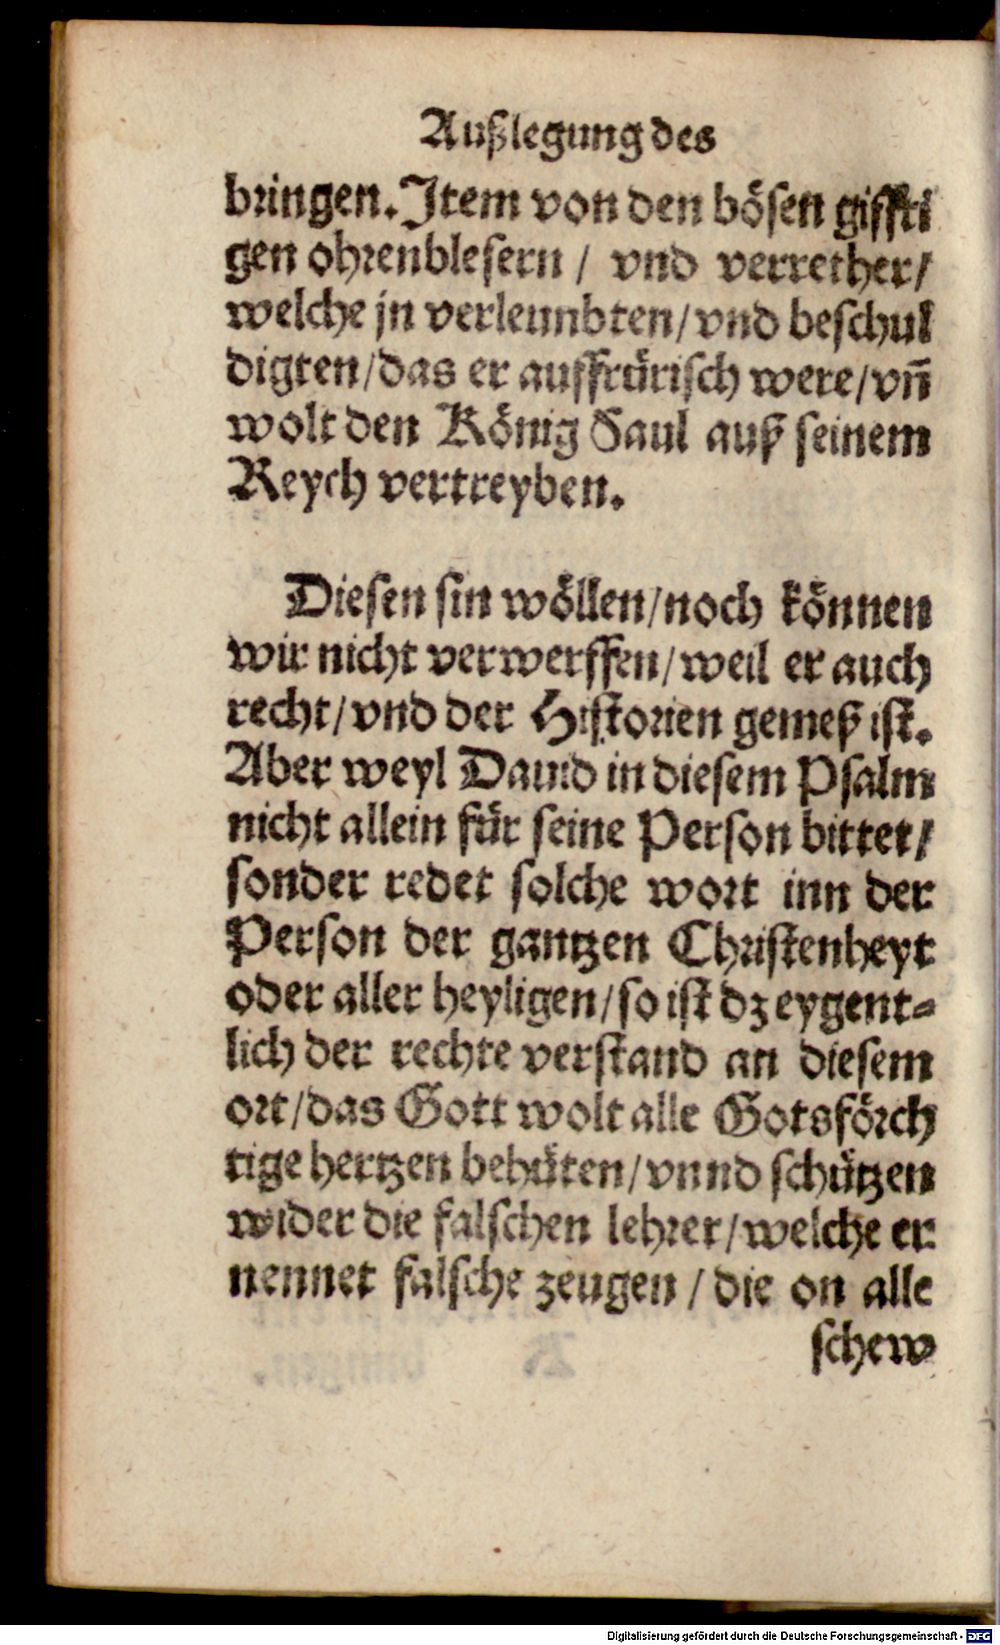 Außlegung des
bringen. Item von den bösen giffti
gen ohrenblesern / vnd verrether/
welche jn verleumbten/vnd beschul
digten/das er auffrürisch were/vñ
wolt den König Saul auß seinem
Reych vertreyben.
Diesen sin wöllen/noch können
wir nicht verwerffen/weil er auch
recht/vnd der Historien gemeß ist.
Aber weyl Dauid in diesem Psalm
nicht allein für seine Person bittet/
sonder redet solche wort inn der
Person der gantzen Christenheyt
oder aller heyligen/so ist dz eygent-
lich der rechte verstand an diesem
ort/das Gott wolt alle Gotsförch
tige hertzen behüten/vnnd schützen
wider die falschen lehrer/welche er
nennet falsche zeugen / die on alle
schew
Digitalisierung gefördert durch die Deutsche Forschungsgemeinschaft - DFG